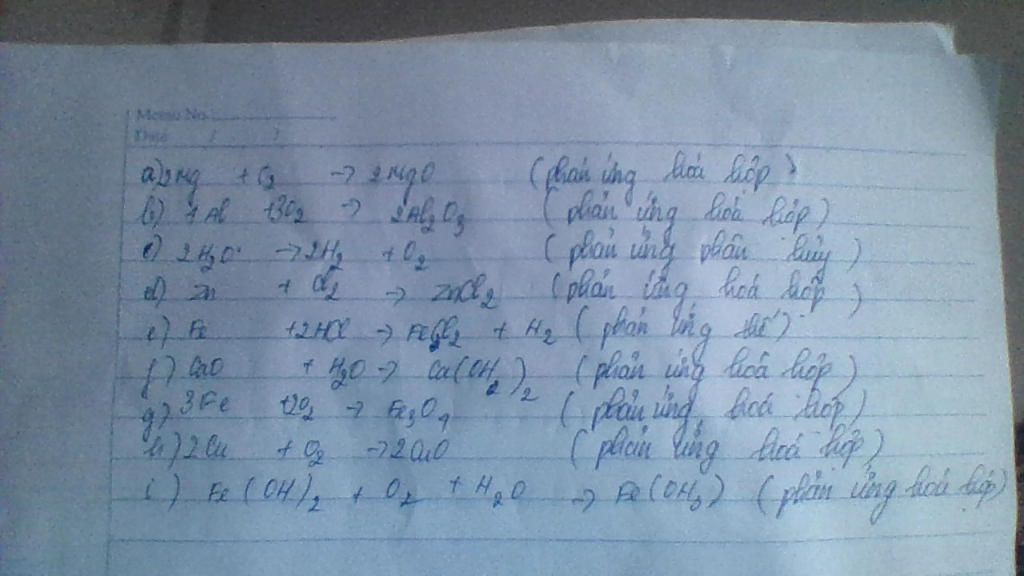 Memo No.
Date / /
a) 2Mg + O2 → 2MgO (phản ứng hoá hợp)
b) 4Al + 3O2 → 2Al2O3 (phản ứng hoá hợp)
c) 2H2O → 2H2 + O2 (phản ứng phân hủy)
d) Zn + Cl2 → ZnCl2 (phản ứng hoá hợp)
e) Fe + 2HCl → FeCl2 + H2 (phản ứng thế)
f) CaO + H2O → Ca(OH2)2 (phản ứng hoá hợp)
g) 3Fe + 2O2 → Fe3O4 (phản ứng hoá hợp)
h) 2Cu + O2 → 2CuO (phản ứng hoá hợp)
i) Fe(OH)2 + O2 + H2O → Fe(OH3) (phản ứng hoá hợp)